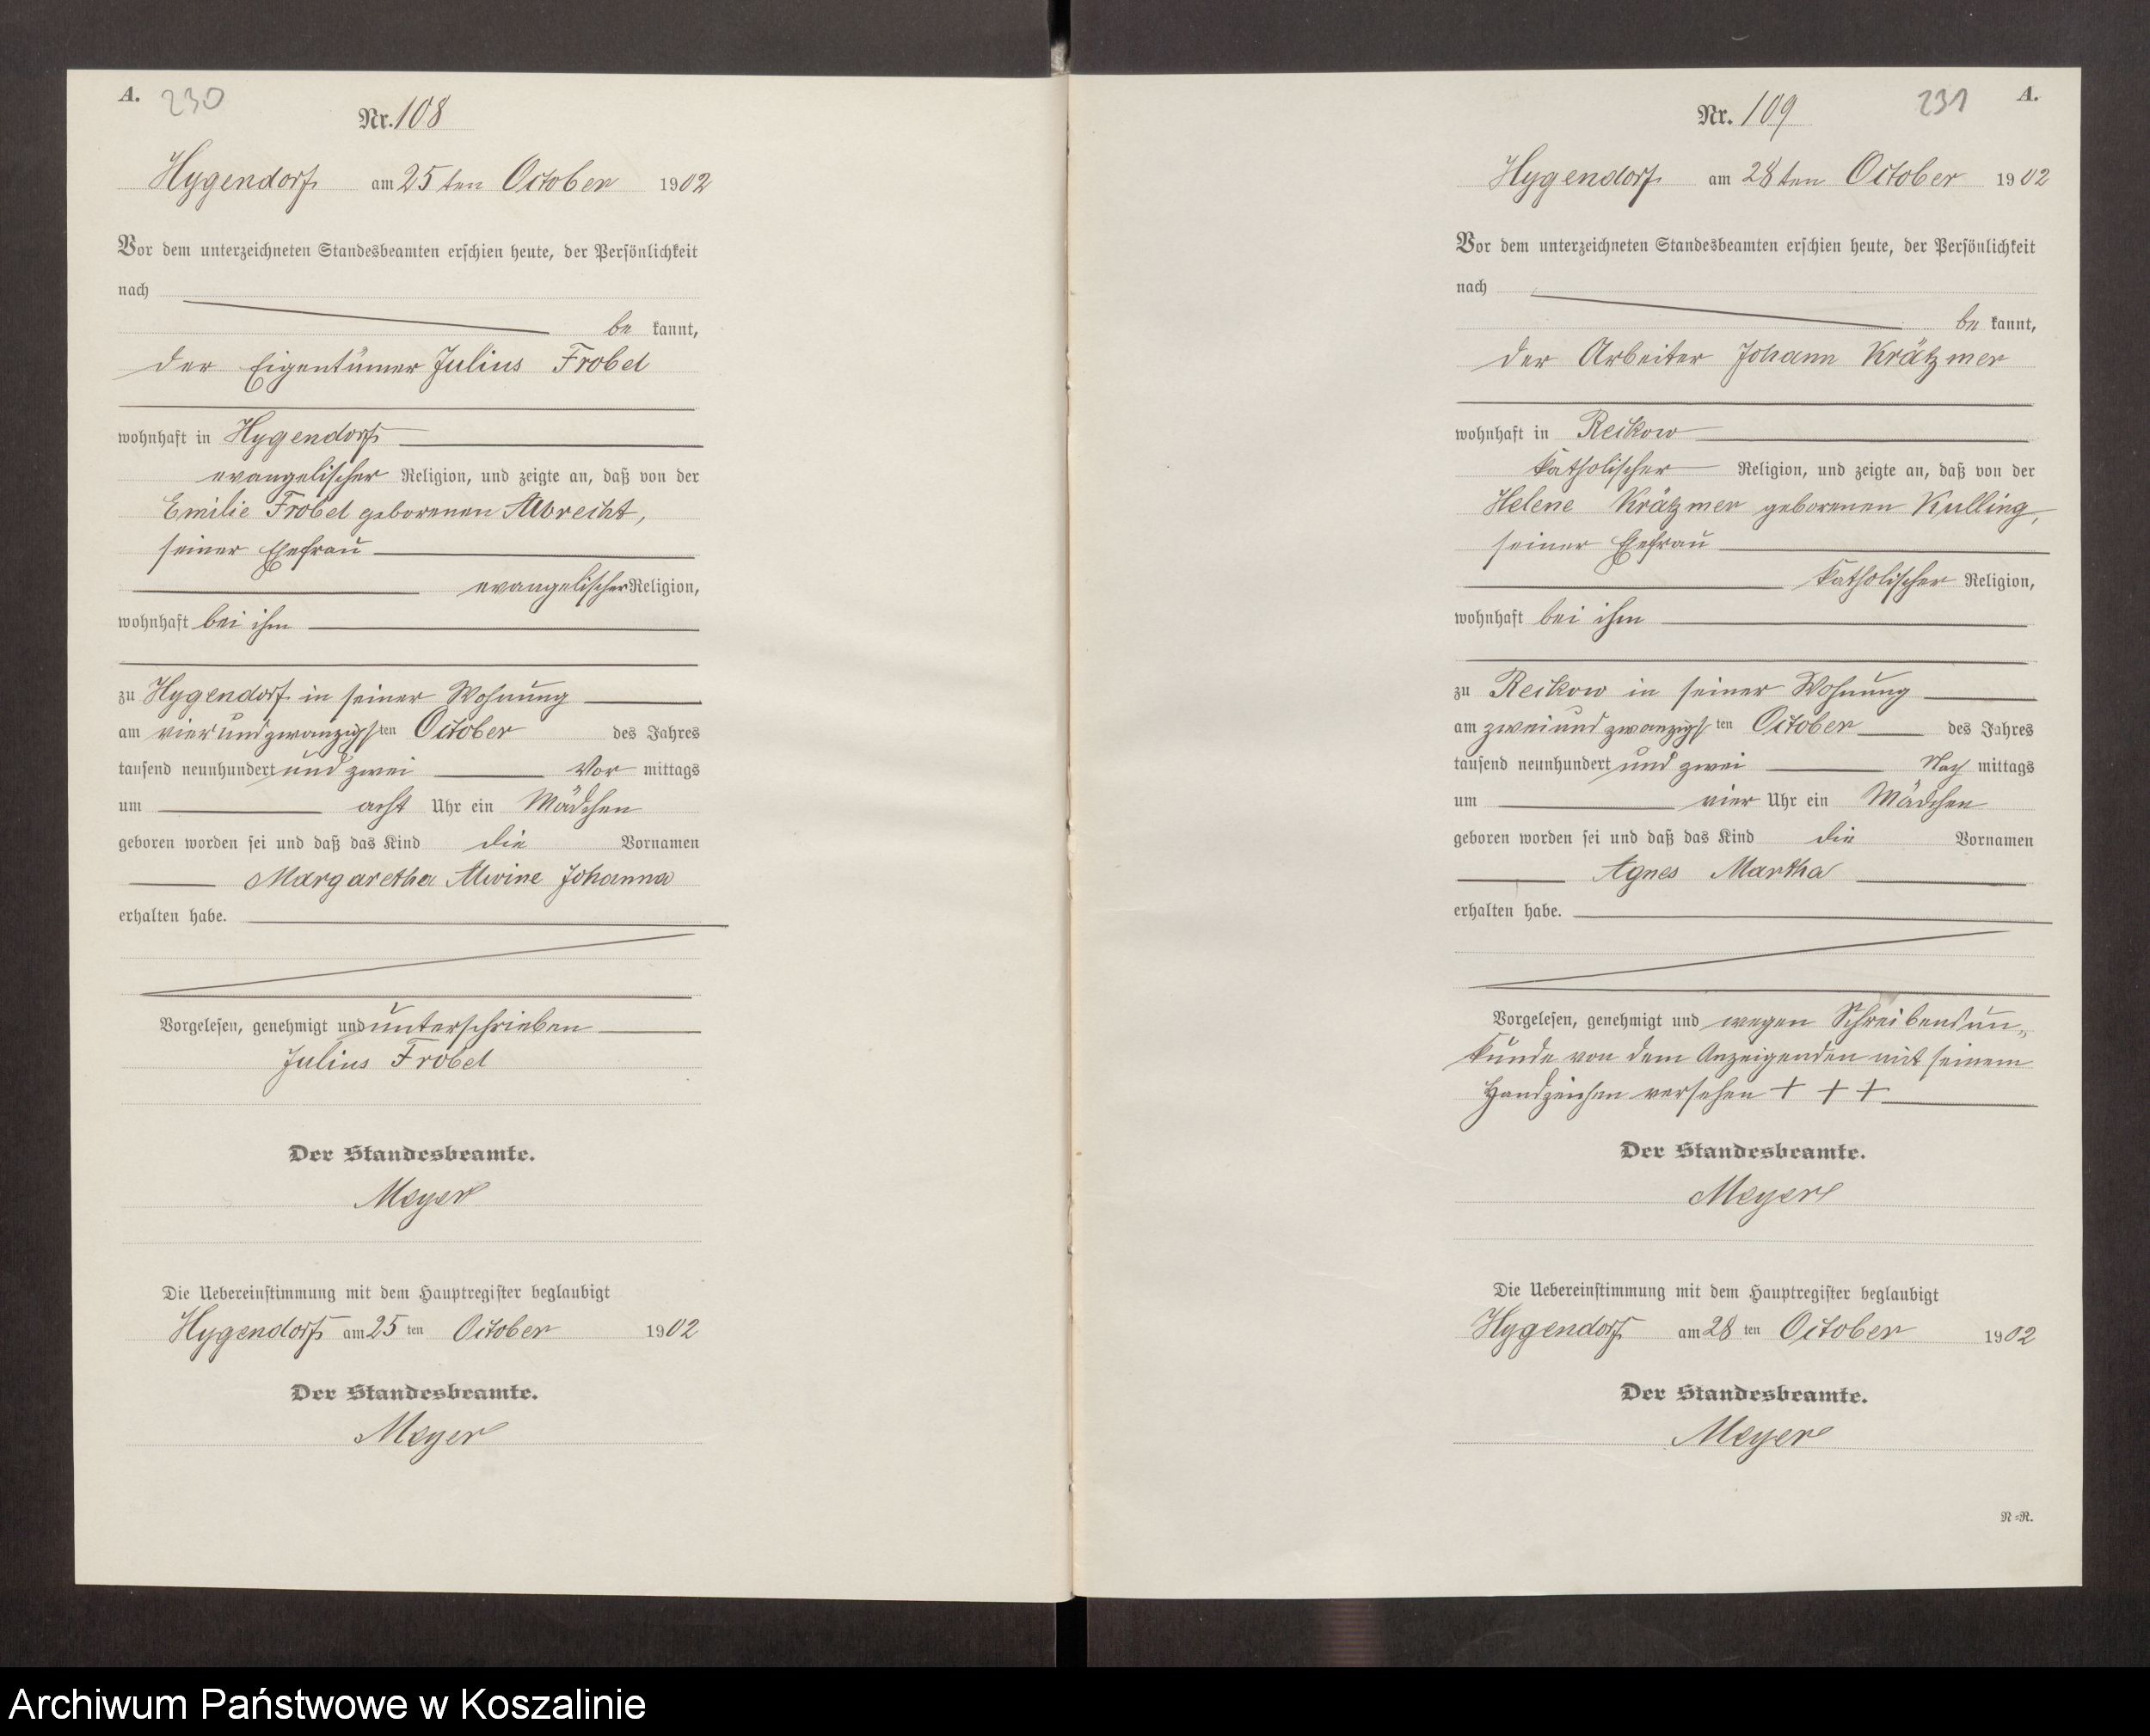 A. 230
Nr. 108
Hygendorf am 25ten October 1902
Vor dem unterzeichneten Standesbeamten erschien heute, der Persönlichkeit
nach
be kannt,
der Eigentümer Julius Frobel
wohnhaft in Hygendorf
evangelischer Religion, und zeigte an, daß von der
Emilie Frobel geborenen Albrecht,
seiner Ehefrau
evangelischer Religion,
wohnhaft bei ihm
zu Hygendorf in seiner Wohnung
am vierundzwanzigsten October des Jahres
tausend neunhundert und zwei Vor mittags
um acht Uhr ein Mädchen
geboren worden sei und daß das Kind die Vornamen
Margaretha Alwine Johanna
erhalten habe.
Vorgelesen, genehmigt und unterschrieben
Julius Frobel
Der Standesbeamte.
Meyer
Die Uebereinstimmung mit dem Hauptregister beglaubigt
Hygendorf am 25 ten October 1902
Der Standesbeamte.
Meyer
231 A.
Nr. 109
Hygendorf am 28ten October 1902
Vor dem unterzeichneten Standesbeamten erschien heute, der Persönlichkeit
nach
be kannt,
der Arbeiter Johann Krätzmer
wohnhaft in Reikow
katholischer Religion, und zeigte an, daß von der
Helene Krätzmer geborenen Kulling,
seiner Ehefrau
katholischer Religion,
wohnhaft bei ihm
zu Reikow in seiner Wohnung
am zweiundzwanzigsten October des Jahres
tausend neunhundert und zwei Nach mittags
um vier Uhr ein Mädchen
geboren worden sei und daß das Kind die Vornamen
Agnes Martha
erhalten habe.
Vorgelesen, genehmigt und wegen Schreibensun-
kunde von dem Anzeigenden mit seinem
Handzeichen versehen + + +
Der Standesbeamte.
Meyer
Die Uebereinstimmung mit dem Hauptregister beglaubigt
Hygendorf am 28 ten October 1902
Der Standesbeamte.
Meyer
N=R.
Archiwum Państwowe w Koszalinie